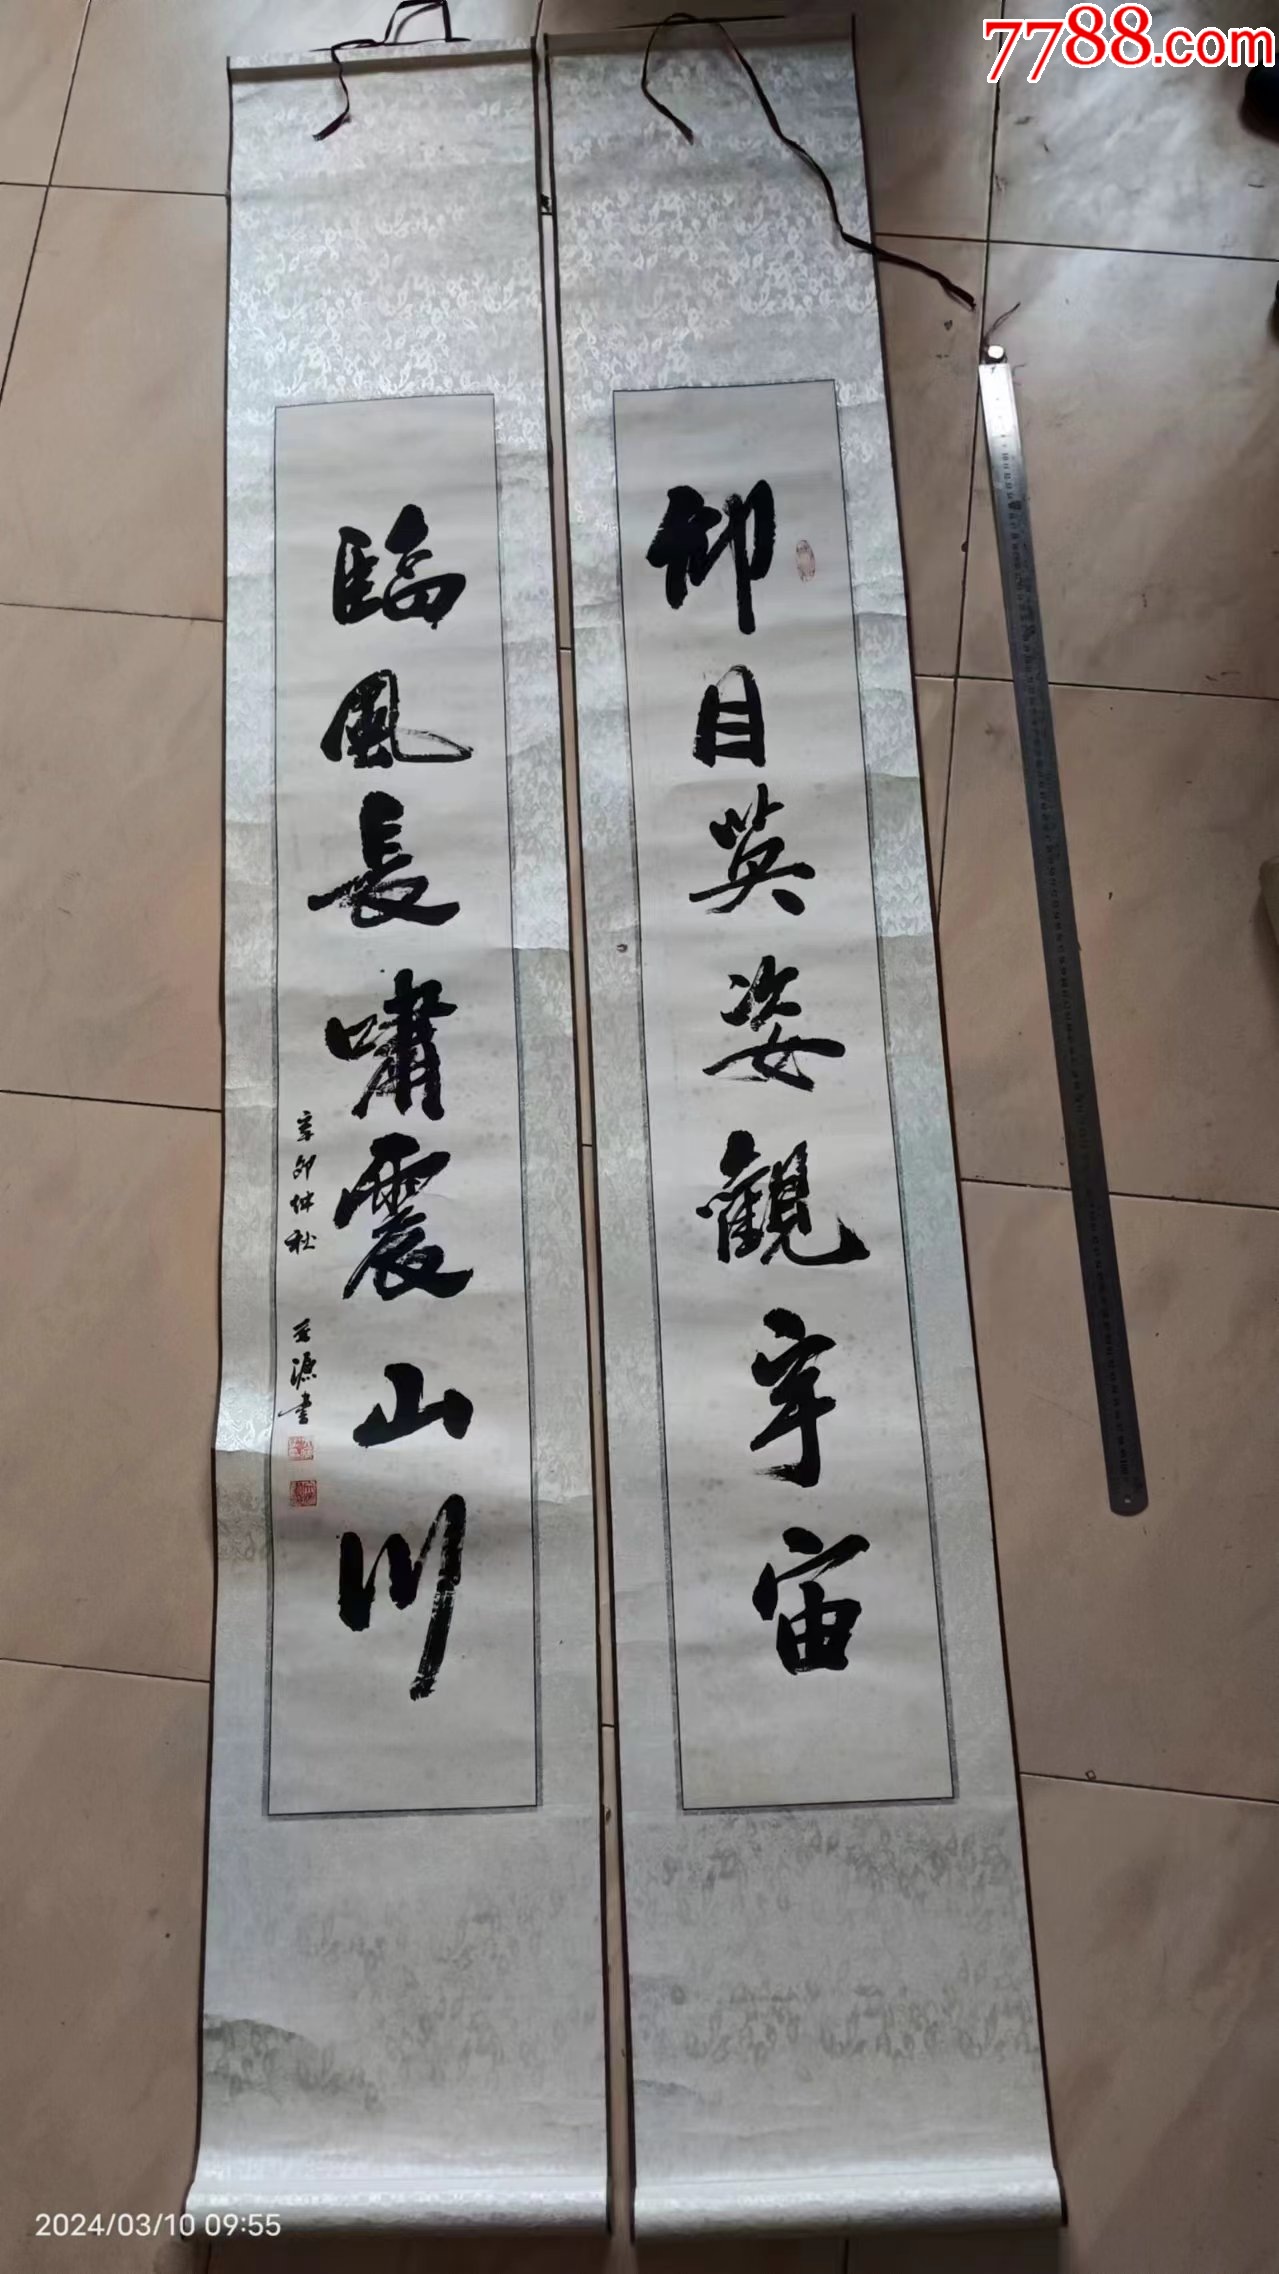 7788.com
仰目英姿觀宇宙
臨風長嘯震山川
辛卯仲秋
源書
2024/03/10 09:55